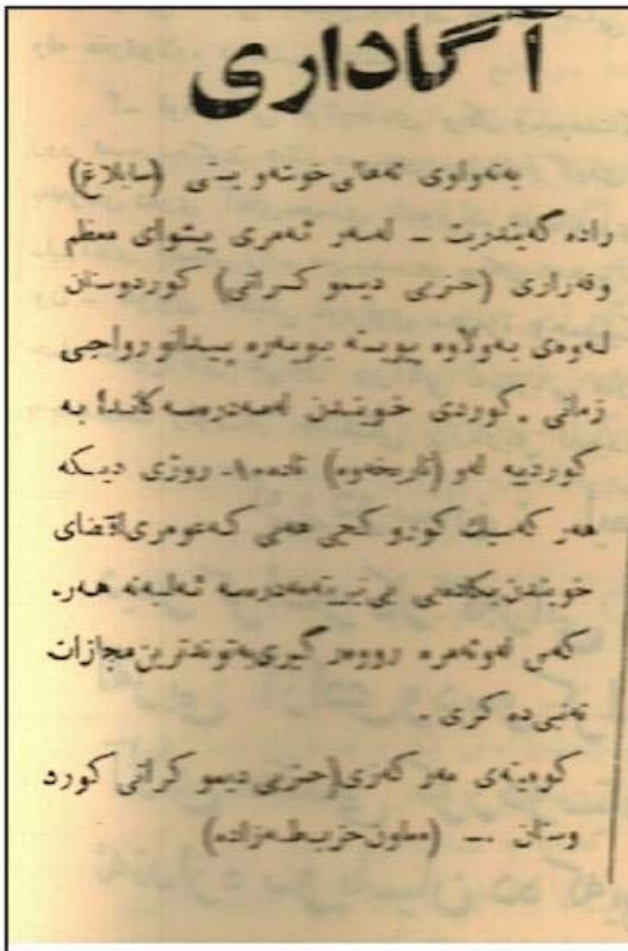 آگاداری
بەتەواوی ئەهالی خوشەویستی (سابلاغ)
رادە گەیندریت ــ لەسەر ئەمری پیشوای معظم
وقەراری (حزبی دیمو کراتی) کوردوستان
لەوەی بەولاوە پیویستە بوبەرە پیدانو رواجی
زمانی . کوردی خویندن لەمەدرەسەکاندا بە
کوردییە لەو (تاریخەوە) تادە١٠ـ روژی دیکە
هەر کەسیك کورو کچی هەبی کەعومری اقضای
خویندن بکا دەبی بی نیریتەمەدرەسە ئەلبەتە هەر.
کەس لەوئەمرە رووەر گیری بەتوندترین مجازات
تەنبی دە کری .
کومیتەی مەر کەزی (حزبی دیمو کراتی کورد
وستان ــ (معاون حزب